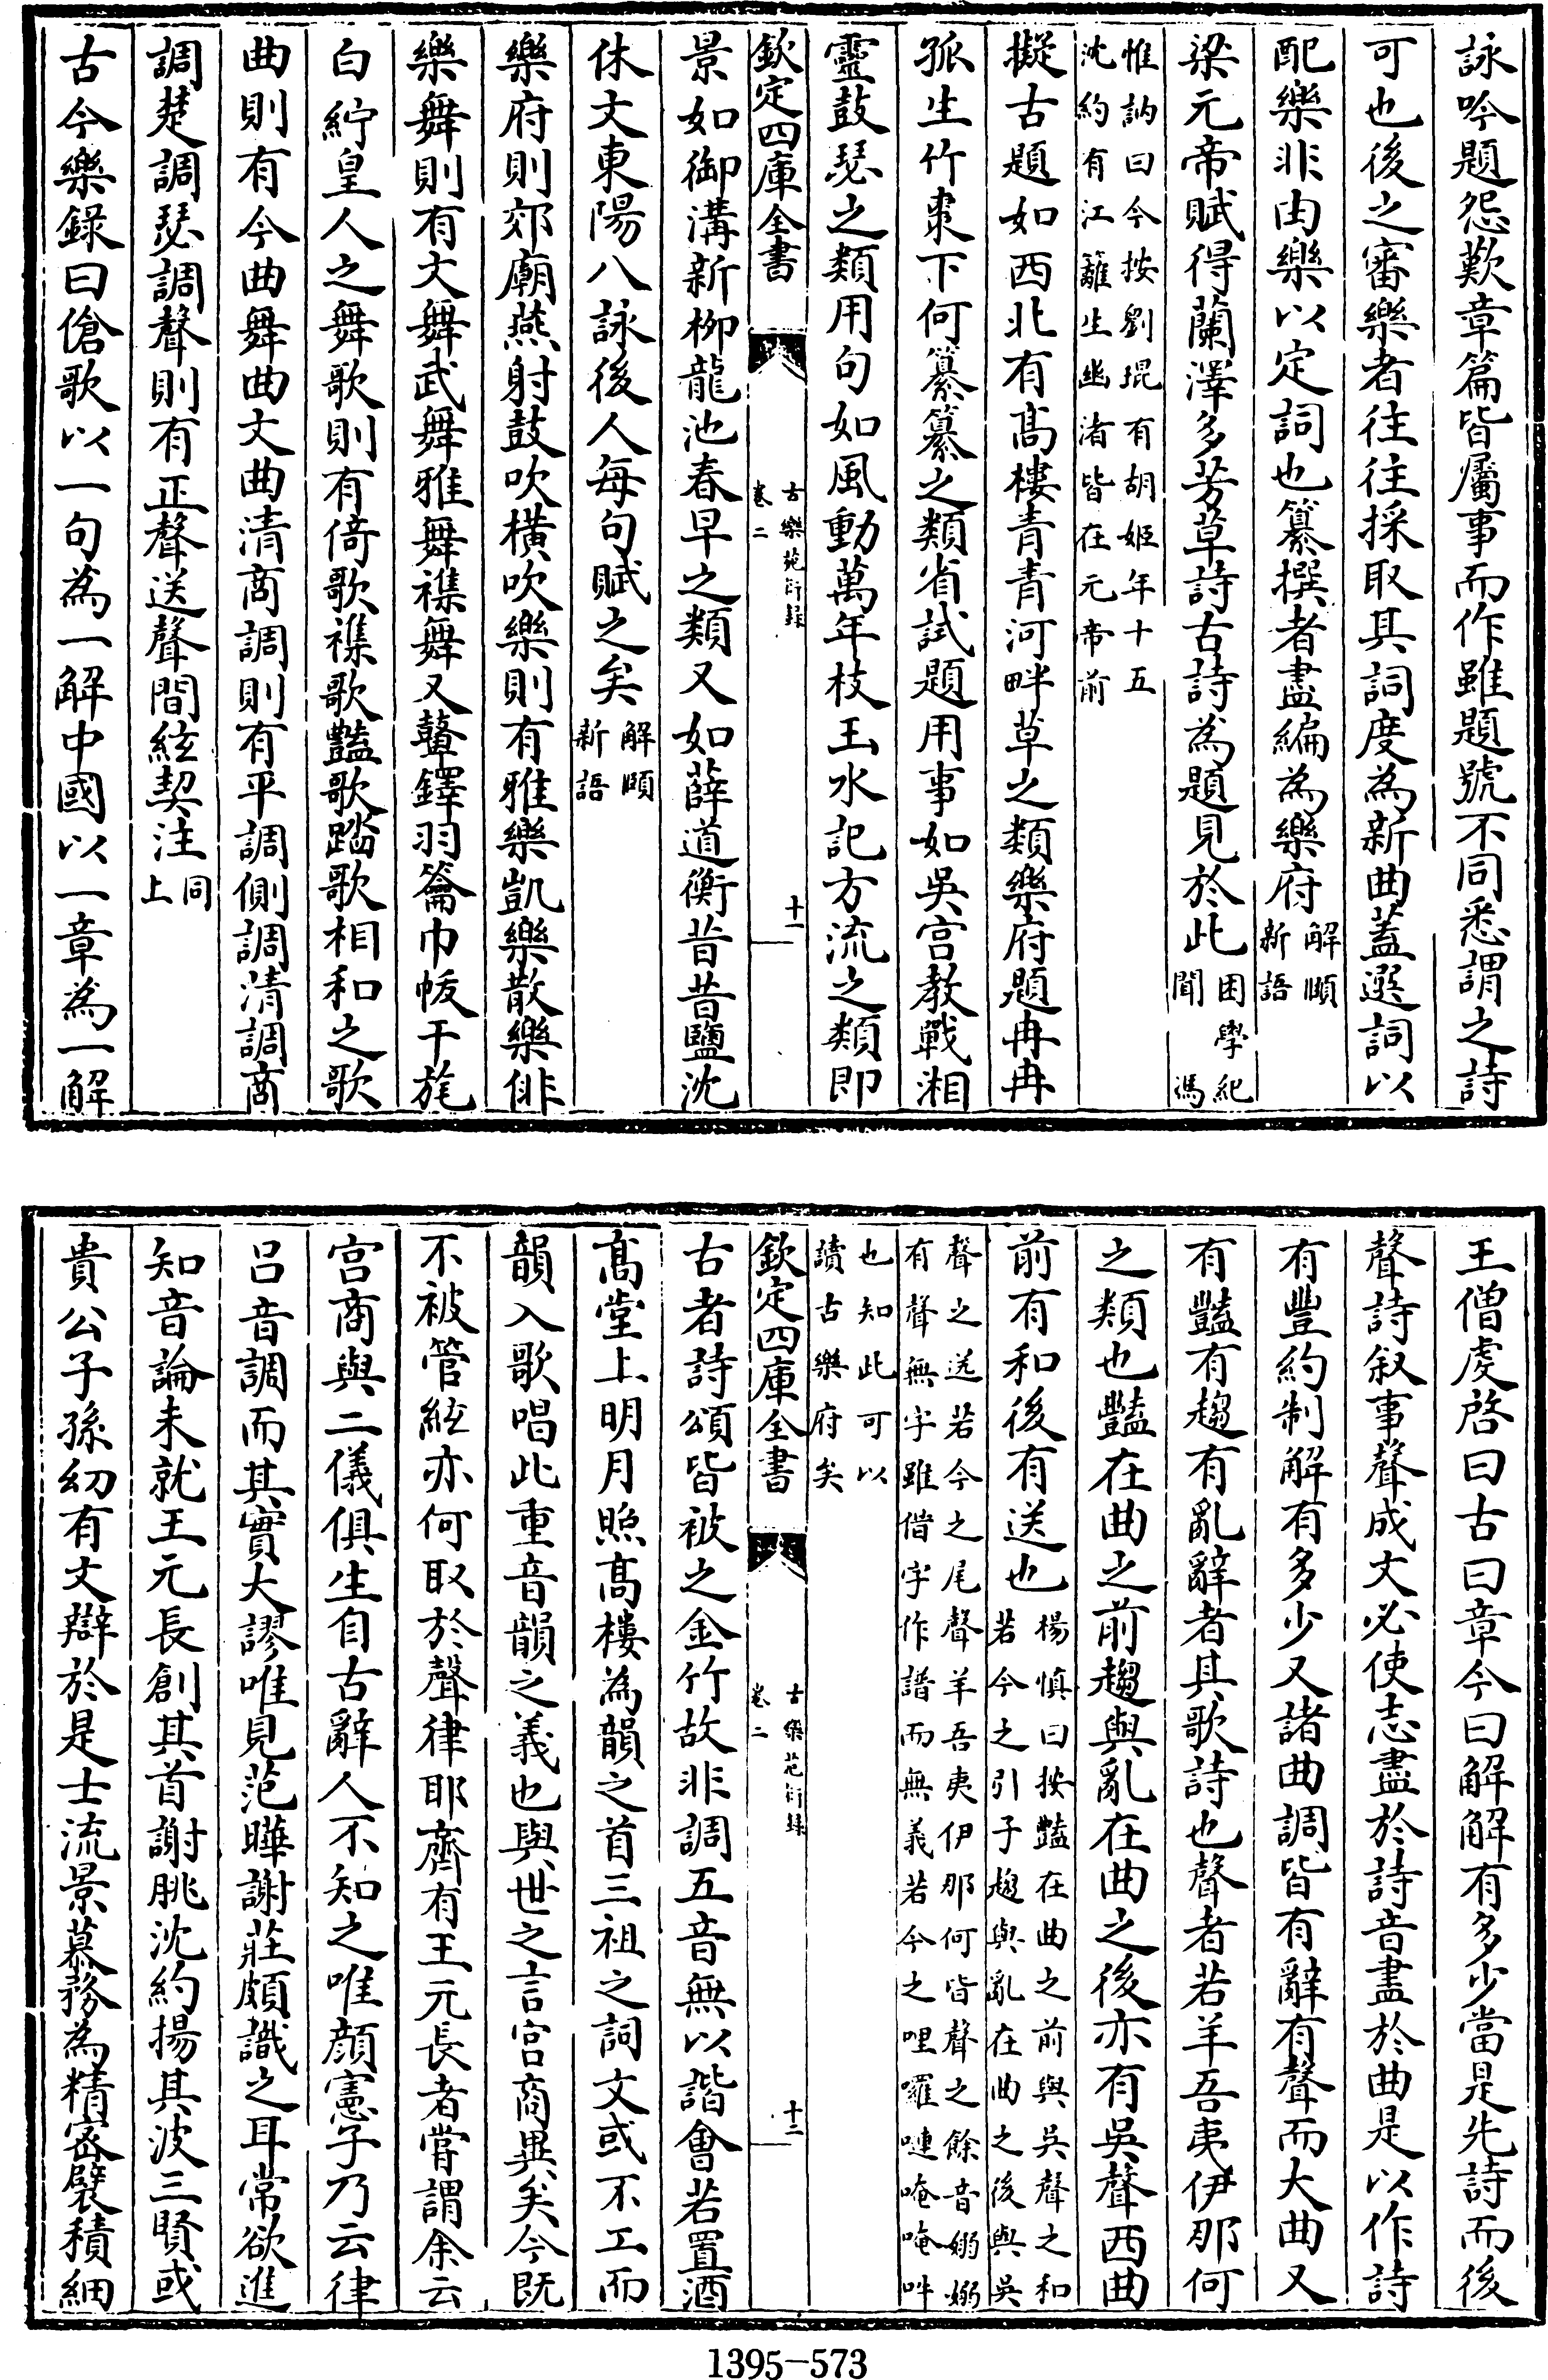 詠吟題怨歎章篇皆屬事而作雖題號不同悉謂之詩
可也後之審樂者往往採取其詞度為新曲蓋選詞以
配樂非由樂以定詞也纂撰者盡編為樂府解頤新語
梁元帝賦得蘭澤多芳草詩古詩為題見於此困學紀聞 馮
惟訥曰今按劉琨有胡姬年十五沈約有江蘺生幽渚皆在元帝前
擬古題如西北有高樓青青河畔草之類樂府題冉冉
孤生竹棗下何纂纂之類省試題用事如吳宫教戰湘
靈鼓瑟之類用句如風動萬年枝玉水記方流之類即
欽定四庫全書 古樂苑衍録 卷二 十一
景如御溝新柳龍池春早之類又如薛道衡昔昔鹽沈
休文東陽八詠後人每句賦之矣解頤新語
樂府則郊廟燕射鼓吹橫吹樂則有雅樂凱樂散樂俳
樂舞則有文舞武舞雅舞襍舞又鼙鐸羽籥巾帗干旄
白紵皇人之舞歌則有倚歌襍歌豔歌踏歌相和之歌
曲則有今曲舞曲文曲清商調則有平調側調清調商
調楚調瑟調聲則有正聲送聲間絃契注同上
古今樂錄曰傖歌以一句為一解中國以一章為一解
王僧虔啓曰古曰章今曰解解有多少當是先詩而後
聲詩叙事聲成文必使志盡於詩音盡於曲是以作詩
有豐約制解有多少又諸曲調皆有辭有聲而大曲又
有豔有趨有亂辭者其歌詩也聲者若羊吾夷伊那何
之類也豔在曲之前趨與亂在曲之後亦有吳聲西曲
前有和後有送也楊慎曰按豔在曲之前與吳聲之和若今之引子趨與亂在曲之後與吳
聲之送若今之尾聲羊吾夷伊那何皆聲之餘音嫋嫋有聲無字雖借字作譜而無義若今之哩囉嗹唵唵吽
也知此可以讀古樂府矣
欽定四庫全書 古樂苑衍録 卷二 十二
古者詩頌皆被之金竹故非調五音無以諧會若置酒
高堂上明月照高樓為韻之首三祖之詞文或不工而
韻入歌唱此重音韻之義也與世之言宫商異矣今既
不被管絃亦何取於聲律耶齊有王元長者嘗謂余云
宫商與二儀俱生自古辭人不知之唯顏憲子乃云律
呂音調而其實大謬唯見范曄謝莊頗識之耳常欲進
知音論未就王元長創其首謝朓沈約揚其波三賢或
貴公子孫幼有文辯於是士流景慕務為精密襞積細
1395-573